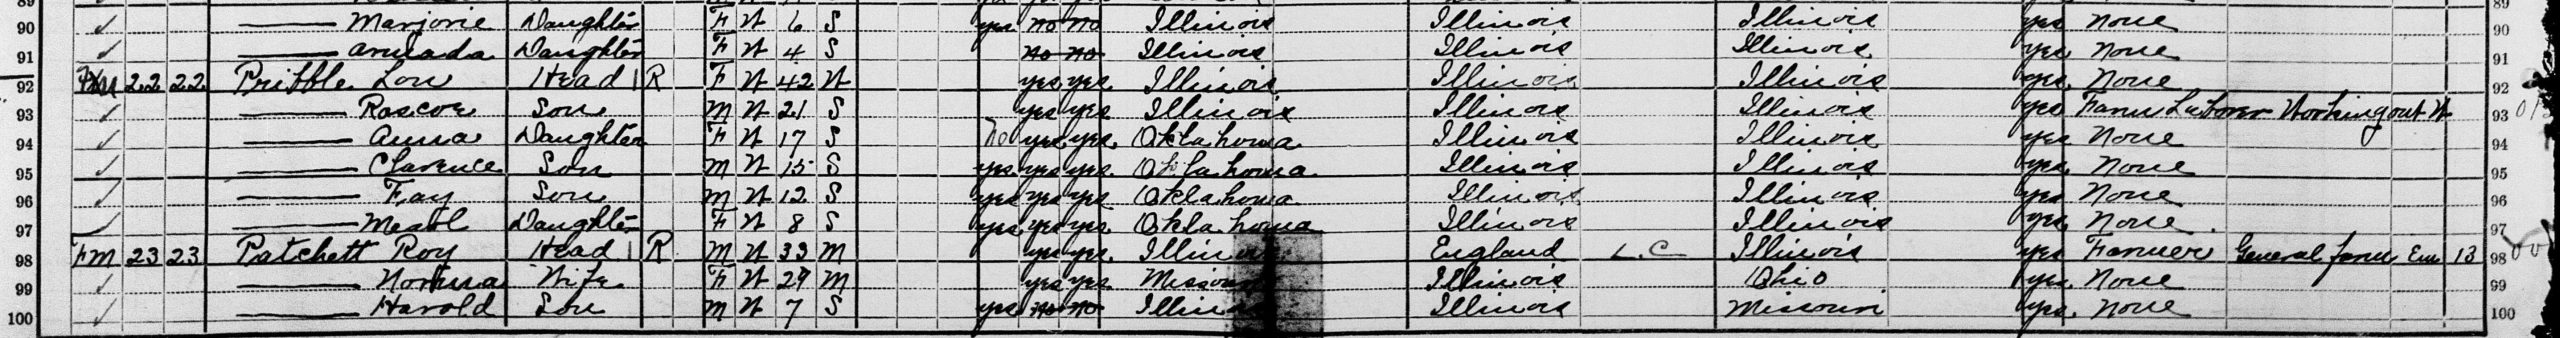 90 ✓ Marjorie Daughter F W 6 S yes no no Illinois Illinois Illinois yes None 90
91 ✓ Armada Daughter F W 4 S no no Illinois Illinois Illinois yes None 91
92 22 22 Pribble Lou Head 1 R F W 42 W yes yes Illinois Illinois Illinois yes None 92
93 ✓ Roscoe Son M W 21 S yes yes Illinois Illinois Illinois yes Farm Laborer Working out W 93
94 ✓ Anna Daughter F W 17 S No yes yes Oklahoma Illinois Illinois yes None 94
95 ✓ Clarence Son M W 15 S yes yes yes Oklahoma Illinois Illinois yes None 95
96 ✓ Fay Son M W 12 S yes yes yes Oklahoma Illinois Illinois yes None 96
97 ✓ Daughter F W 8 S yes yes yes Oklahoma Illinois Illinois yes None 97
98 FM 23 23 Patchett Roy Head 1 R M W 33 M yes yes Illinois England L.C Illinois yes Farmer General farm Em 13 98
99 ✓ Norma Wife F W 29 M yes yes Missouri Illinois Ohio yes None 99
100 ✓ Harold Son M W 7 S yes no no Illinois Illinois Missouri yes None 100